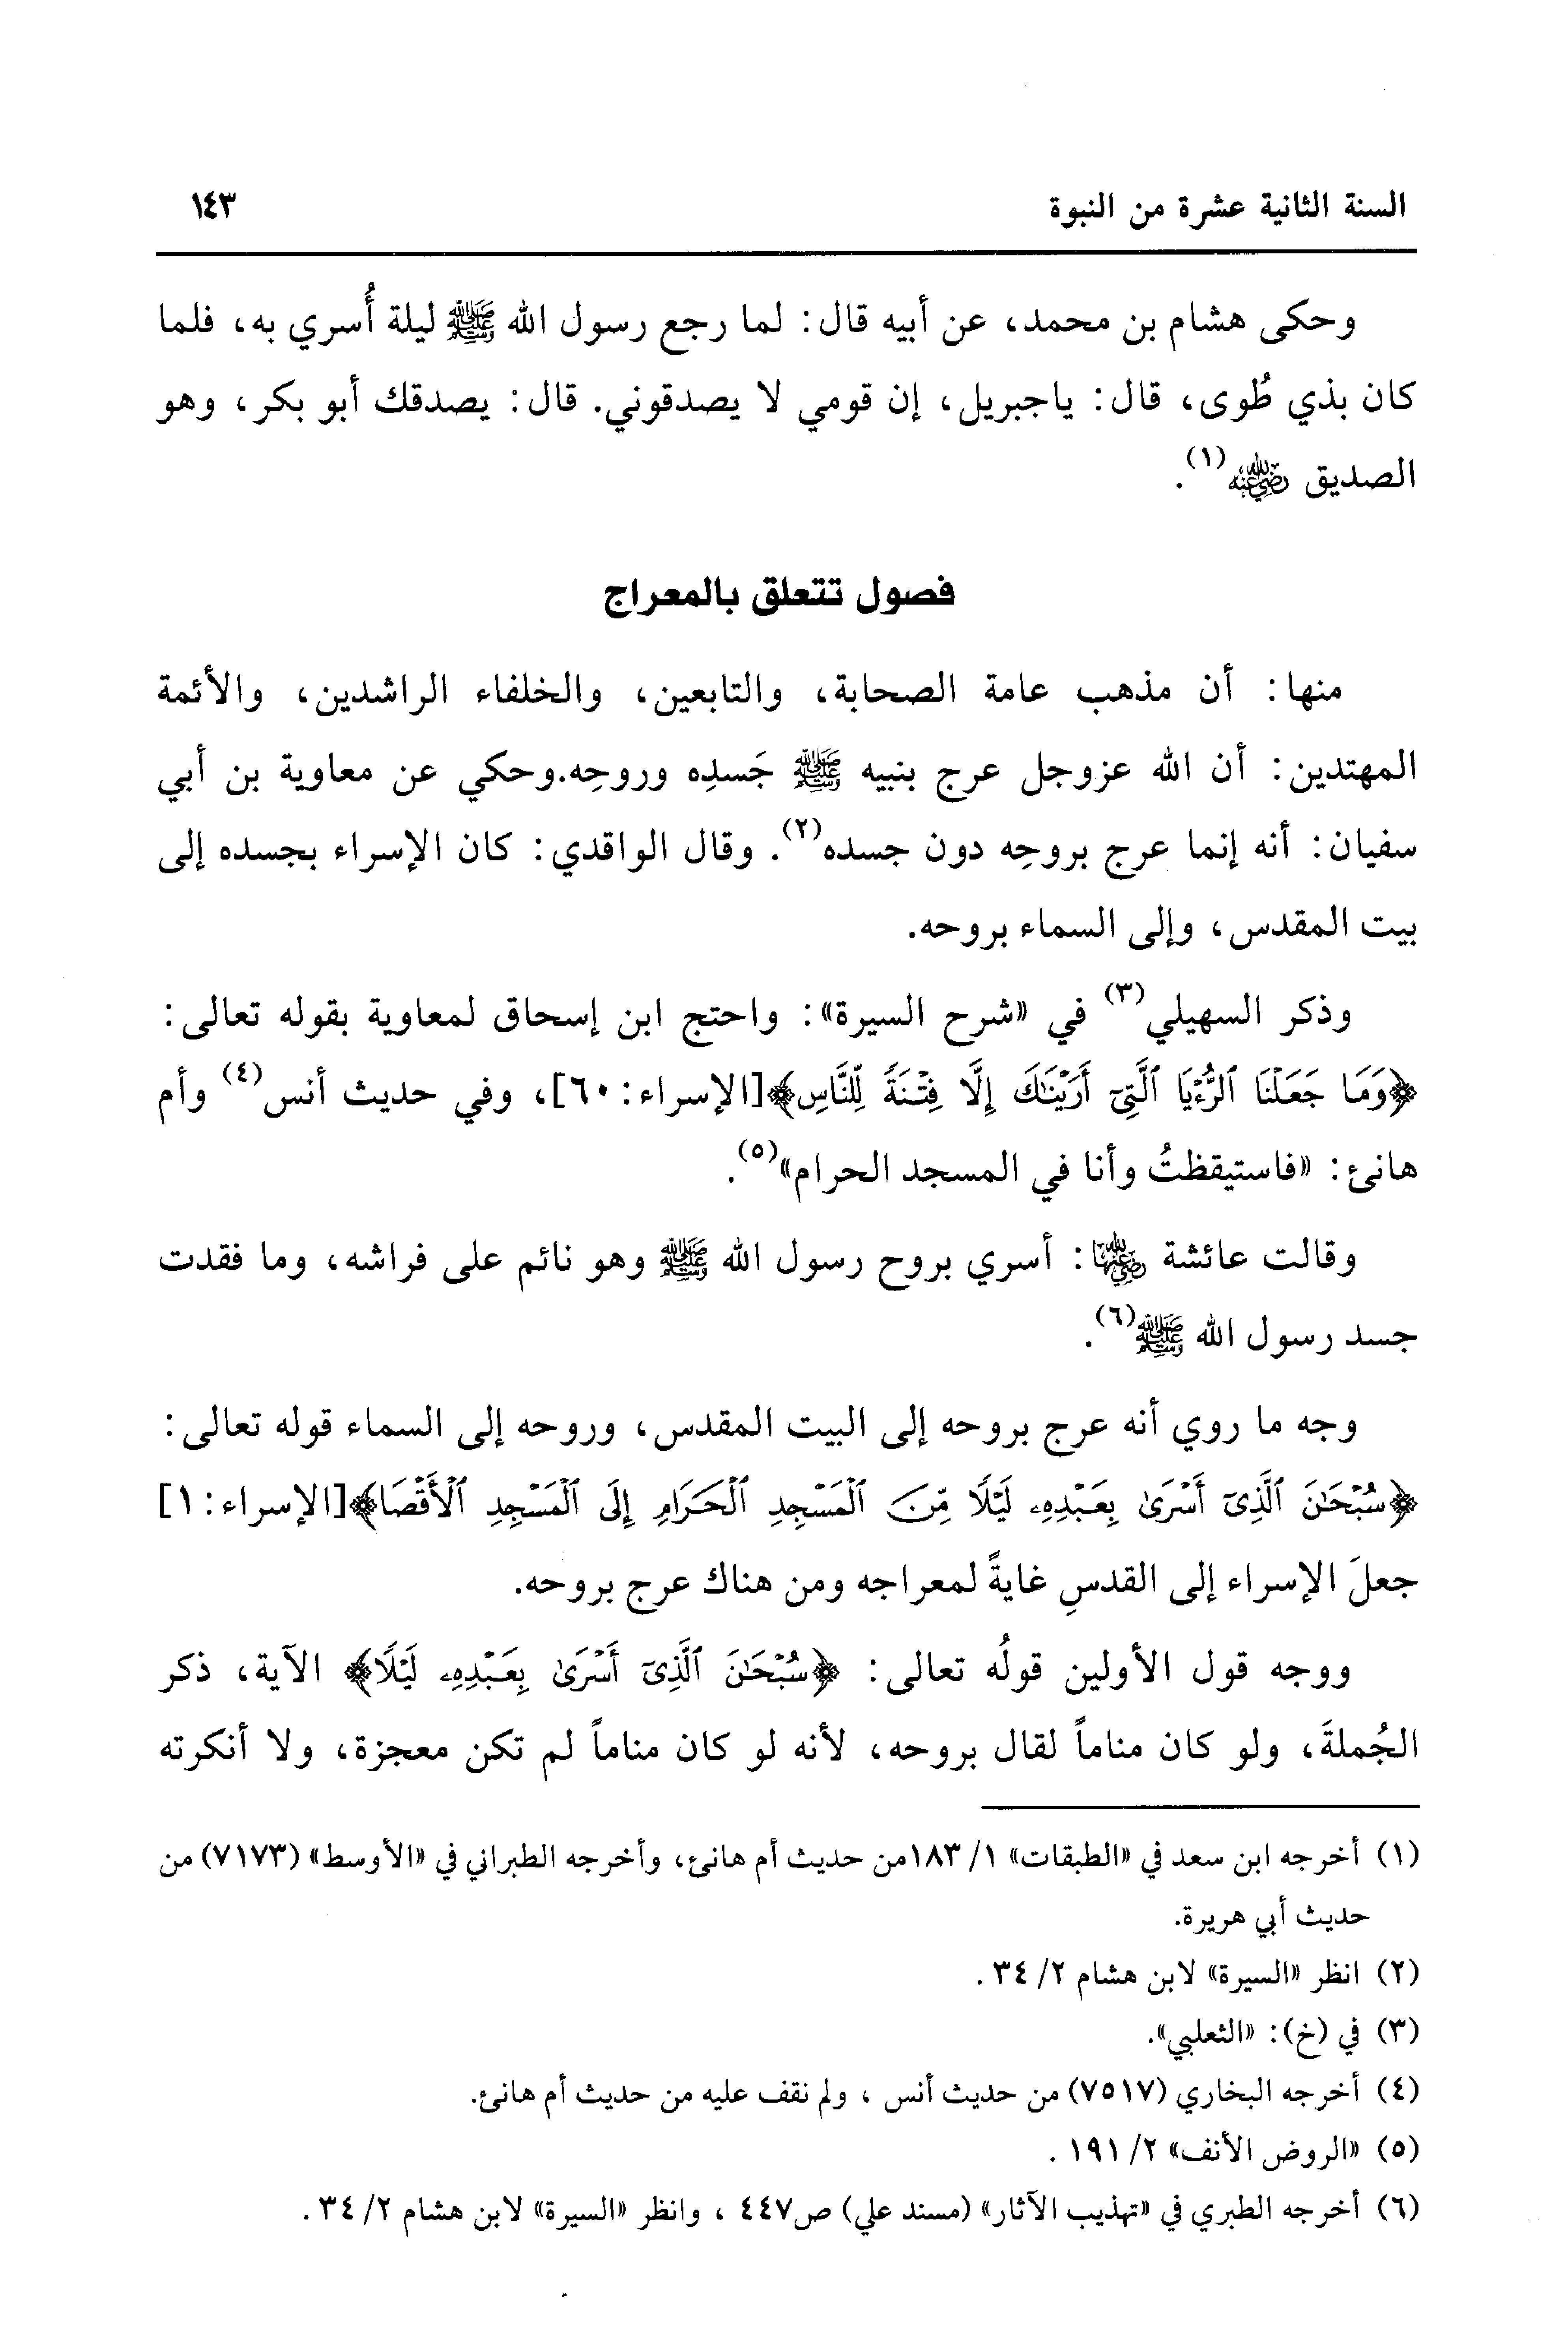 السنة الثانية عشرة من النبوة ١٤٣
وحكى هشام بن محمد، عن أبيه قال: لما رجع رسول الله ﷺ ليلة أُسري به، فلما
كان بذي طُوى، قال: ياجبريل، إن قومي لا يصدقوني. قال: يصدقك أبو بكر، وهو
الصديق رضي الله عنه(١).
فصول تتعلق بالمعراج
منها: أن مذهب عامة الصحابة، والتابعين، والخلفاء الراشدين، والأئمة
المهتدين: أن الله عزوجل عرج بنبيه ﷺ جَسدِه وروحِه.وحكي عن معاوية بن أبي
سفيان: أنه إنما عرج بروحِه دون جسده(٢). وقال الواقدي: كان الإسراء بجسده إلى
بيت المقدس، وإلى السماء بروحه.
وذكر السهيلي(٣) في «شرح السيرة»: واحتج ابن إسحاق لمعاوية بقوله تعالى:
﴿وَمَا جَعَلْنَا ٱلرُّءْيَا ٱلَّتِىٓ أَرَيْنَٰكَ إِلَّا فِتْنَةً لِّلنَّاسِ﴾[الإسراء: ٦٠]، وفي حديث أنس(٤) وأم
هانئ: «فاستيقظتُ وأنا في المسجد الحرام»(٥).
وقالت عائشة رضي الله عنها: أسري بروح رسول الله ﷺ وهو نائم على فراشه، وما فقدت
جسد رسول الله ﷺ(٦).
وجه ما روي أنه عرج بروحه إلى البيت المقدس، وروحه إلى السماء قوله تعالى:
﴿سُبْحَٰنَ ٱلَّذِىٓ أَسْرَىٰ بِعَبْدِهِۦ لَيْلًا مِّنَ ٱلْمَسْجِدِ ٱلْحَرَامِ إِلَى ٱلْمَسْجِدِ ٱلْأَقْصَا﴾[الإسراء: ١]
جعلَ الإسراء إلى القدسِ غايةً لمعراجه ومن هناك عرج بروحه.
ووجه قول الأولين قولُه تعالى: ﴿سُبْحَٰنَ ٱلَّذِىٓ أَسْرَىٰ بِعَبْدِهِۦ لَيْلًا﴾ الآية، ذكر
الجُملةَ، ولو كان مناماً لقال بروحه، لأنه لو كان مناماً لم تكن معجزة، ولا أنكرته
(١) أخرجه ابن سعد في «الطبقات» ١/ ١٨٣من حديث أم هانئ، وأخرجه الطبراني في «الأوسط» (٧١٧٣) من
حديث أبي هريرة.
(٢) انظر «السيرة» لابن هشام ٢/ ٣٤ .
(٣) في (خ): «الثعلبي».
(٤) أخرجه البخاري (٧٥١٧) من حديث أنس ، ولم نقف عليه من حديث أم هانئ.
(٥) «الروض الأنف» ٢/ ١٩١ .
(٦) أخرجه الطبري في «تهذيب الآثار» (مسند علي) ص٤٤٧ ، وانظر «السيرة» لابن هشام ٢/ ٣٤ .